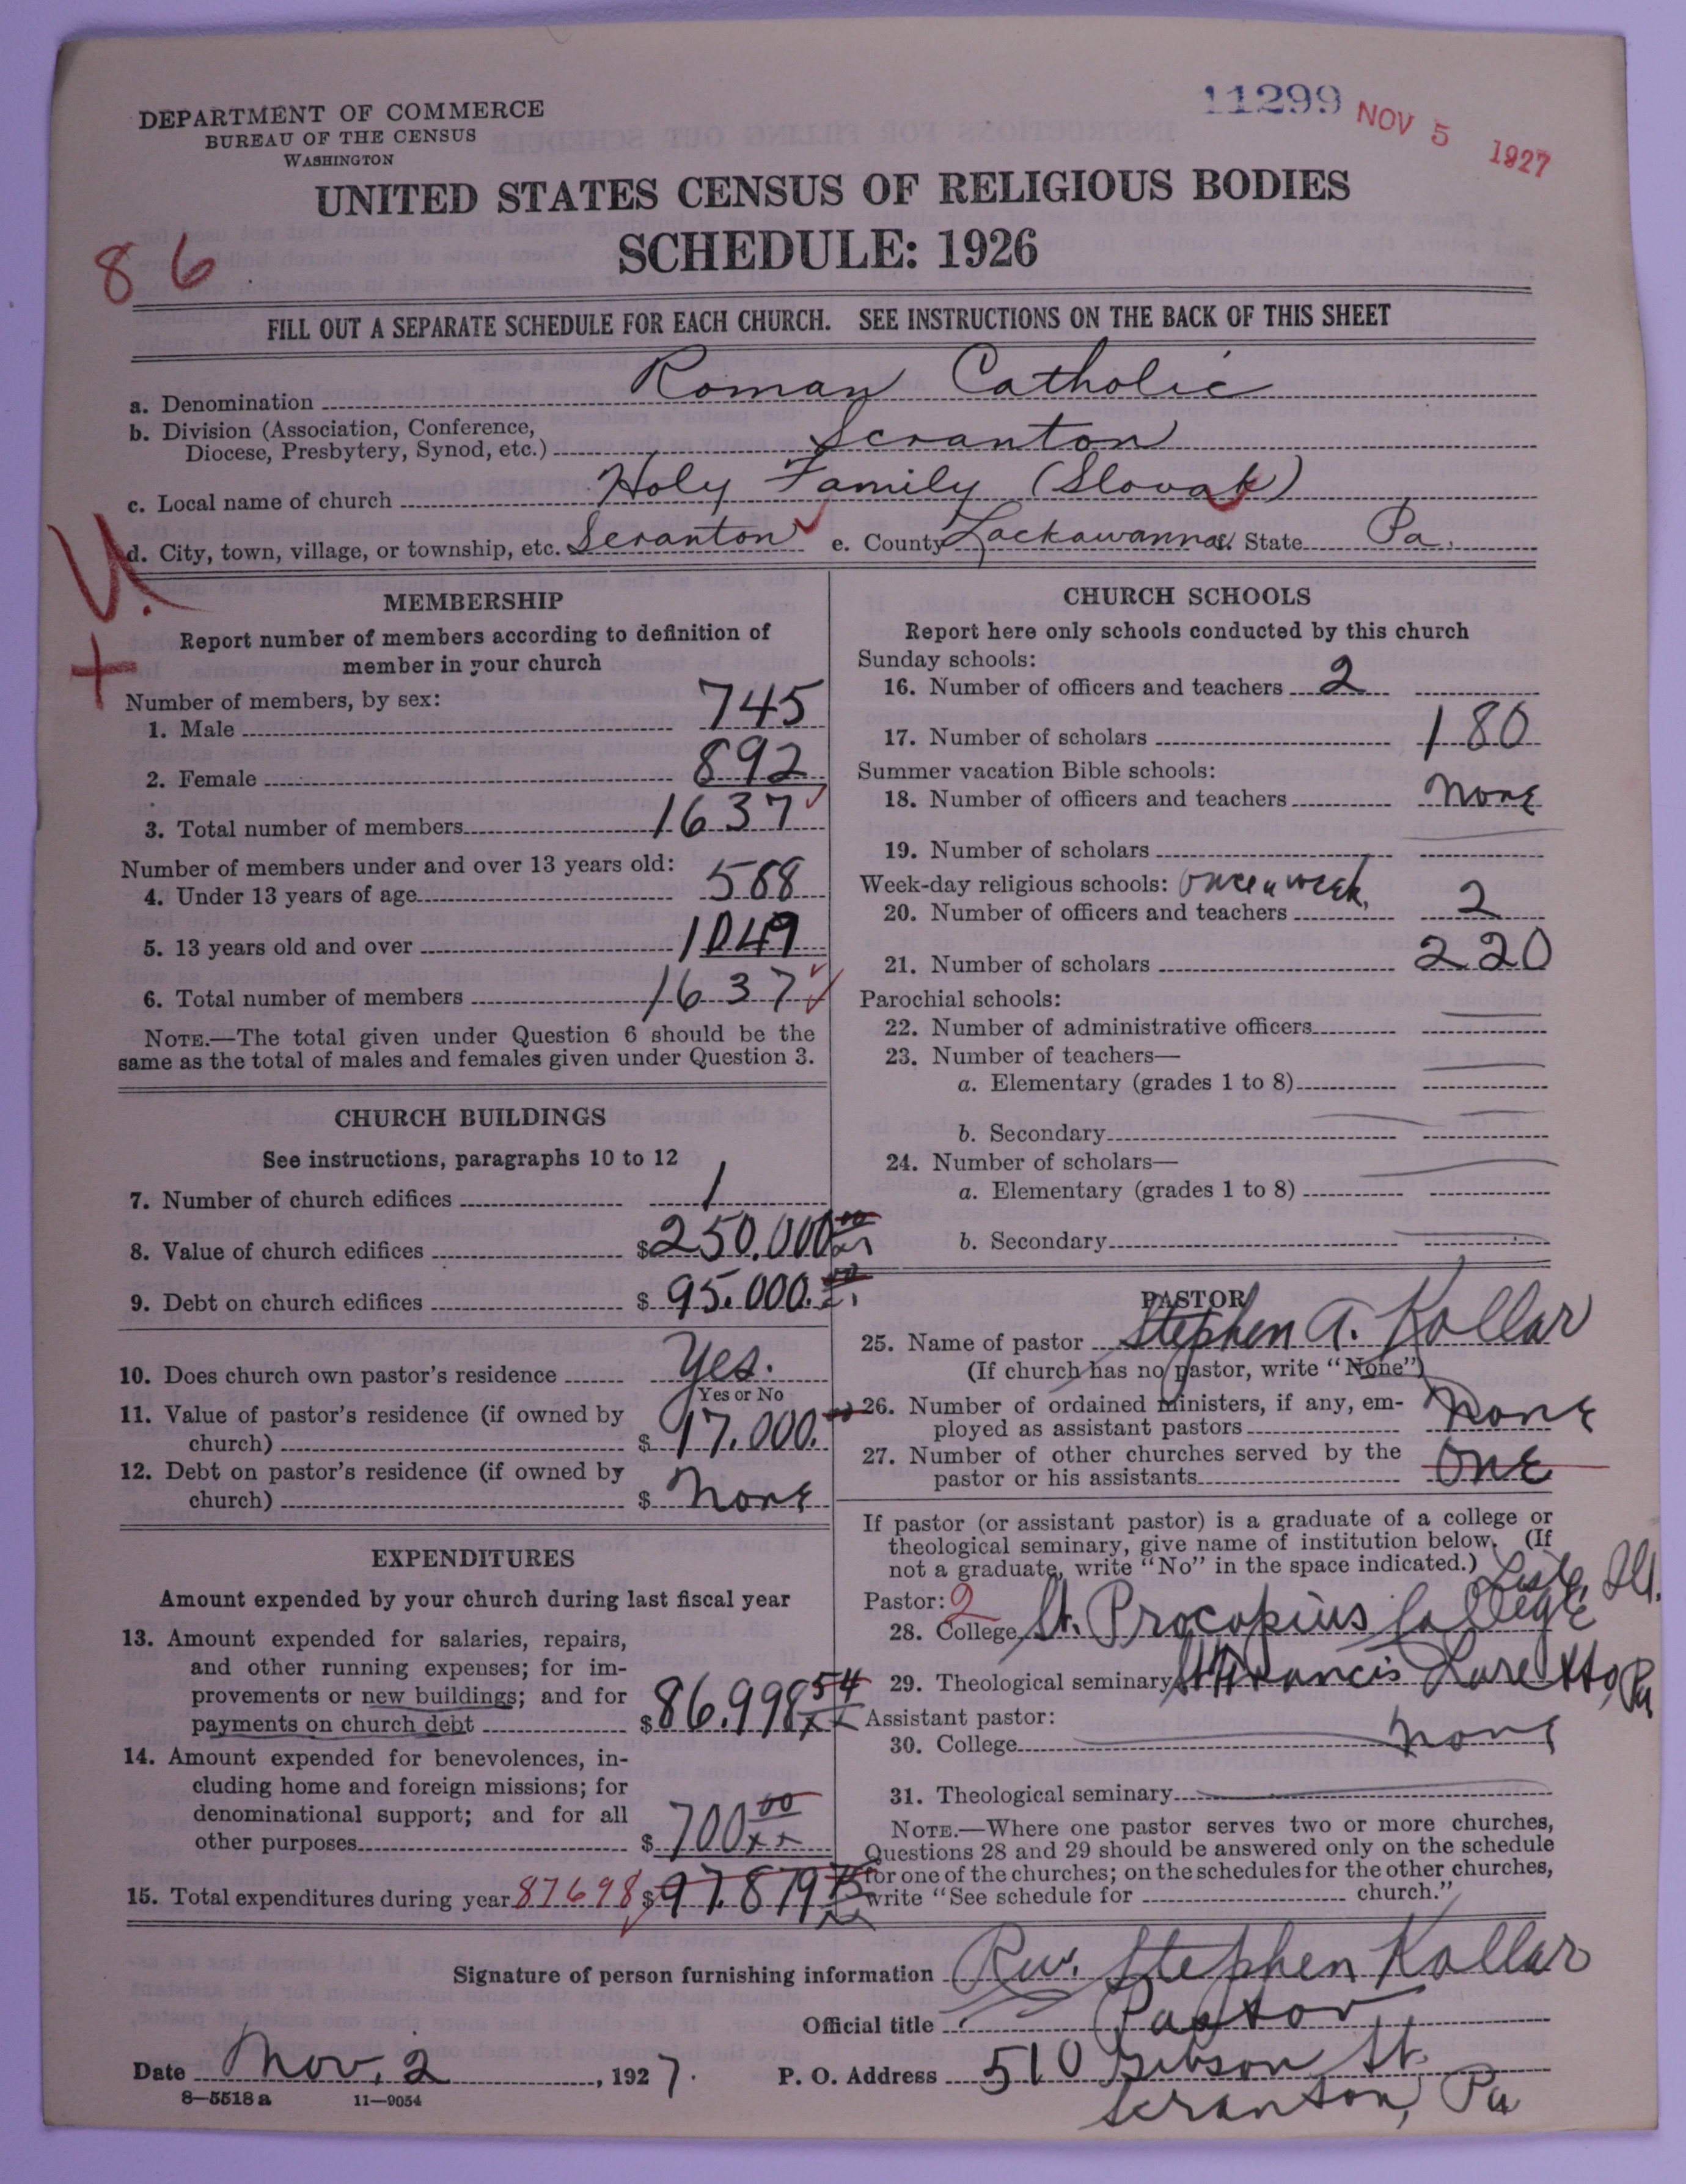 11299 NOV 5 1927
DEPARTMENT OF COMMERCE
BUREAU OF THE CENSUS
WASHINGTON
UNITED STATES CENSUS OF RELIGIOUS BODIES
SCHEDULE: 1926
86
FILL OUT A SEPARATE SCHEDULE FOR EACH CHURCH. SEE INSTRUCTIONS ON THE BACK OF THIS SHEET
a. Denomination Roman Catholic
b. Division (Association, Conference,
Diocese, Presbytery, Synod, etc.) Scranton
c. Local name of church Holy Family (Slovak)
d. City, town, village, or township, etc. Scranton e. County Lackawanna State Pa.
U.
+
MEMBERSHIP
Report number of members according to definition of
member in your church
Number of members, by sex:
1. Male 745
2. Female 892
3. Total number of members 1637
Number of members under and over 13 years old:
4. Under 13 years of age 588
5. 13 years old and over 1049
6. Total number of members 1637
NOTE.—The total given under Question 6 should be the
same as the total of males and females given under Question 3.
CHURCH BUILDINGS
See instructions, paragraphs 10 to 12
7. Number of church edifices 1
8. Value of church edifices $250.000 00
9. Debt on church edifices $95.000.
10. Does church own pastor's residence Yes.
Yes or No
11. Value of pastor's residence (if owned by
church) $17.000.
12. Debt on pastor's residence (if owned by
church) $None
EXPENDITURES
Amount expended by your church during last fiscal year
13. Amount expended for salaries, repairs,
and other running expenses; for im-
provements or new buildings; and for
payments on church debt $86.998 54
xx
14. Amount expended for benevolences, in-
cluding home and foreign missions; for
denominational support; and for all
other purposes $700 00
xx
15. Total expenditures during year 87698 $97.879
CHURCH SCHOOLS
Report here only schools conducted by this church
Sunday schools:
16. Number of officers and teachers 2
17. Number of scholars 180
Summer vacation Bible schools:
18. Number of officers and teachers None
19. Number of scholars
Week-day religious schools: Once a week.
20. Number of officers and teachers 2
21. Number of scholars 220
Parochial schools:
22. Number of administrative officers
23. Number of teachers—
a. Elementary (grades 1 to 8)
b. Secondary
24. Number of scholars—
a. Elementary (grades 1 to 8)
b. Secondary
PASTOR
25. Name of pastor Stephen A. Kollar
(If church has no pastor, write "None")
26. Number of ordained ministers, if any, em-
ployed as assistant pastors None
27. Number of other churches served by the
pastor or his assistants One
If pastor (or assistant pastor) is a graduate of a college or
theological seminary, give name of institution below. (If
not a graduate, write "No" in the space indicated.)
Pastor: 2 Lisle, Ill.
28. College St. Procopius College
29. Theological seminary St Francis Loretto, Pa
Assistant pastor:
30. College None
31. Theological seminary
NOTE.—Where one pastor serves two or more churches,
Questions 28 and 29 should be answered only on the schedule
for one of the churches; on the schedules for the other churches,
write "See schedule for church."
Signature of person furnishing information Rev. Stephen Kollar
Official title Pastor
Date Nov. 2, 1927. P. O. Address 510 Gibson St.
Scranton, Pa
8—5518 a 11—9054